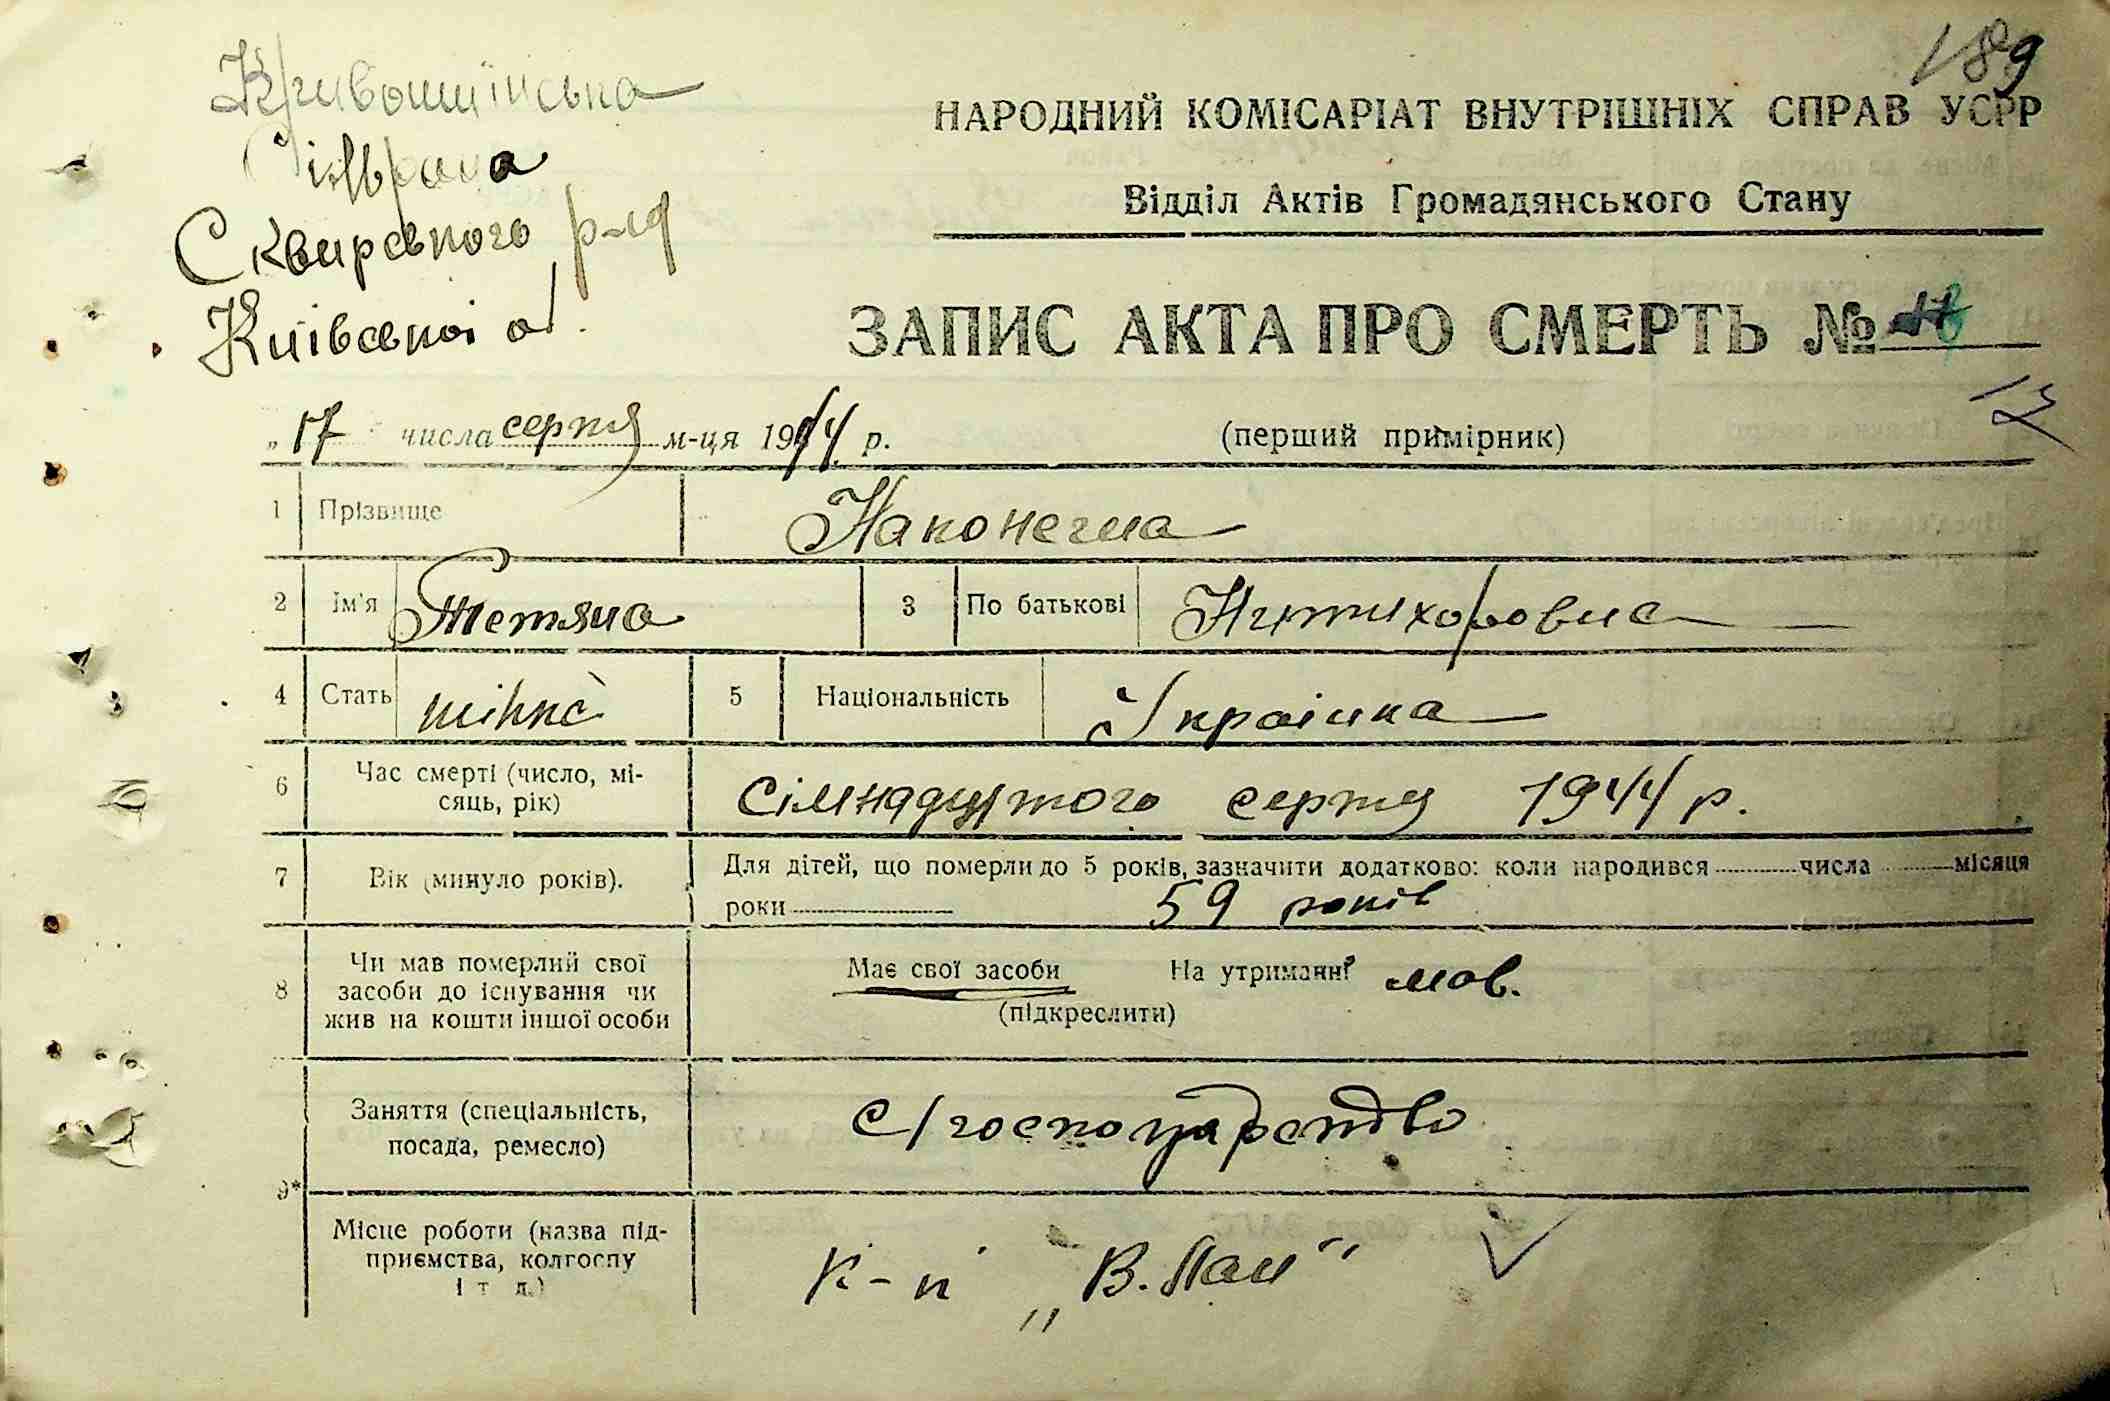 189
Кривошиїнська
Сільрада
Сквирського р-на
Київської об.
НАРОДНИЙ КОМІСАРІАТ ВНУТРІШНІХ СПРАВ УСРР
Відділ Актів Громадянського Стану
ЗАПИС АКТА ПРО СМЕРТЬ №
17
„17" числа серпня м-ця 1944 р.
(перший примірник)
1 Прізвище Наконечна
2 Ім'я Тетяна 3 По батькові Ничипоровна
4 Стать жіноч 5 Національність Українка
6 Час смерті (число, мі-
сяць, рік) Сімнадцятого серпня 1944 р.
7 Вік (минуло років). Для дітей, що померли до 5 років, зазначити додатково: коли народився числа місяця
роки 59 років
8 Чи мав померлий свої
засоби до існування чи
жив на кошти іншої особи
Має свої засоби На утриманні
(підкреслити)
9* Заняття (спеціальність,
посада, ремесло) С/господарство
Місце роботи (назва під-
приємства, колгоспу
і т д.)
К-п „В.